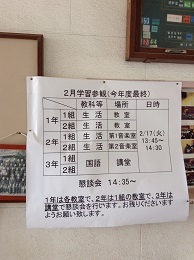 2月学習参観(今年度最終)
教科等 場所 日時
1年 1組 生活 教室 2/17(火) 13:45〜14:30
2組 生活 教室
2年 1組 生活 第1音楽室
2組 生活 第2音楽室
3年 1組 国語 講堂
2組
懇談会 14:35〜
1年は各教室で、2年は1組の教室で、3年は
講堂で懇談会を行います。お残りくださいます
ようお願い致します。